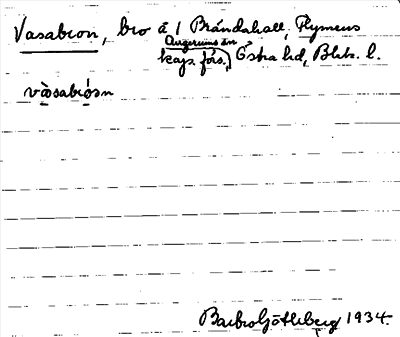 Vasabron, bro å 1 Brändahall, Flymens
Angerums ån
kaps. förs., Östra hd, Blek. l.
vàsabrón
Barbro Götlberg 1934.